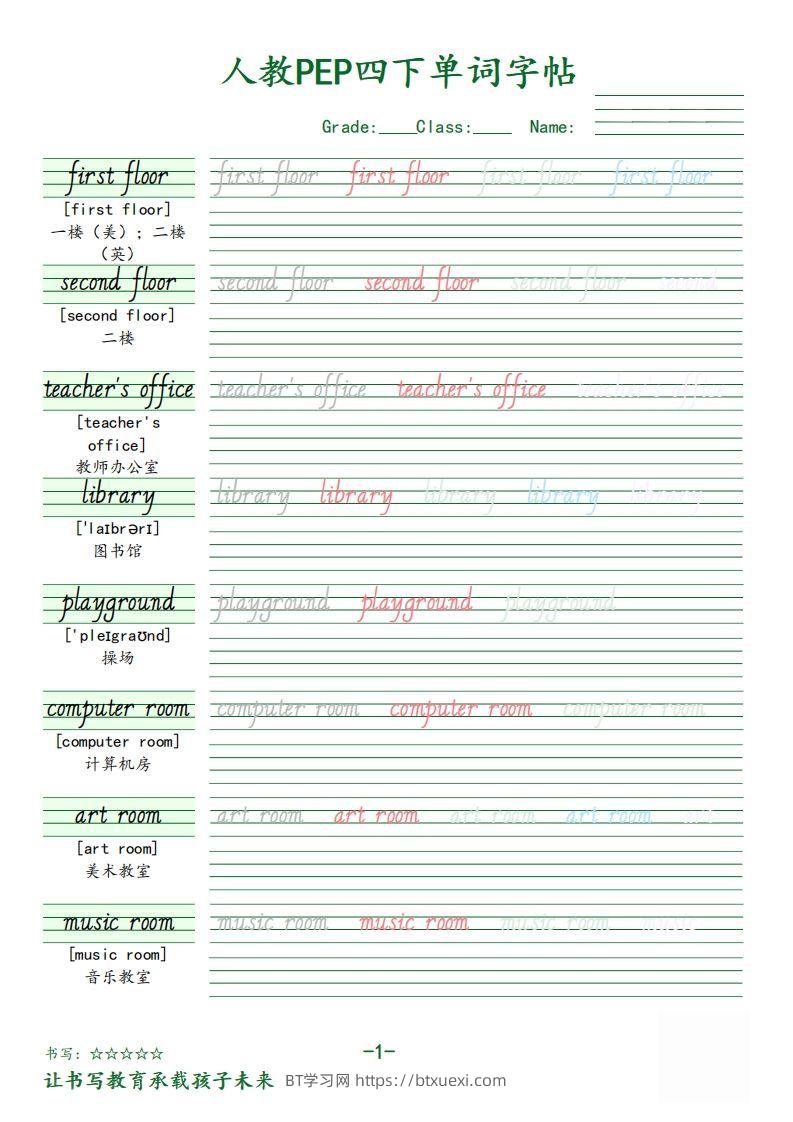 人教PEP四下单词字帖
Grade:____Class:____ Name:
first floor first floor first floor first floor first floor
[first floor]
一楼（美）；二楼
（英）
second floor second floor second floor second floor second
[second floor]
二楼
teacher's office teacher's office teacher's office teacher's office
[teacher's
office]
教师办公室
library library library library library library
['laɪbrərɪ]
图书馆
playground playground playground playground
['pleɪgraʊnd]
操场
computer room computer room computer room computer room
[computer room]
计算机房
art room art room art room art room art room art
[art room]
美术教室
music room music room music room music room music
[music room]
音乐教室
书写：☆☆☆☆☆
-1-
让书写教育承载孩子未来 BT学习网 https://btxuexi.com